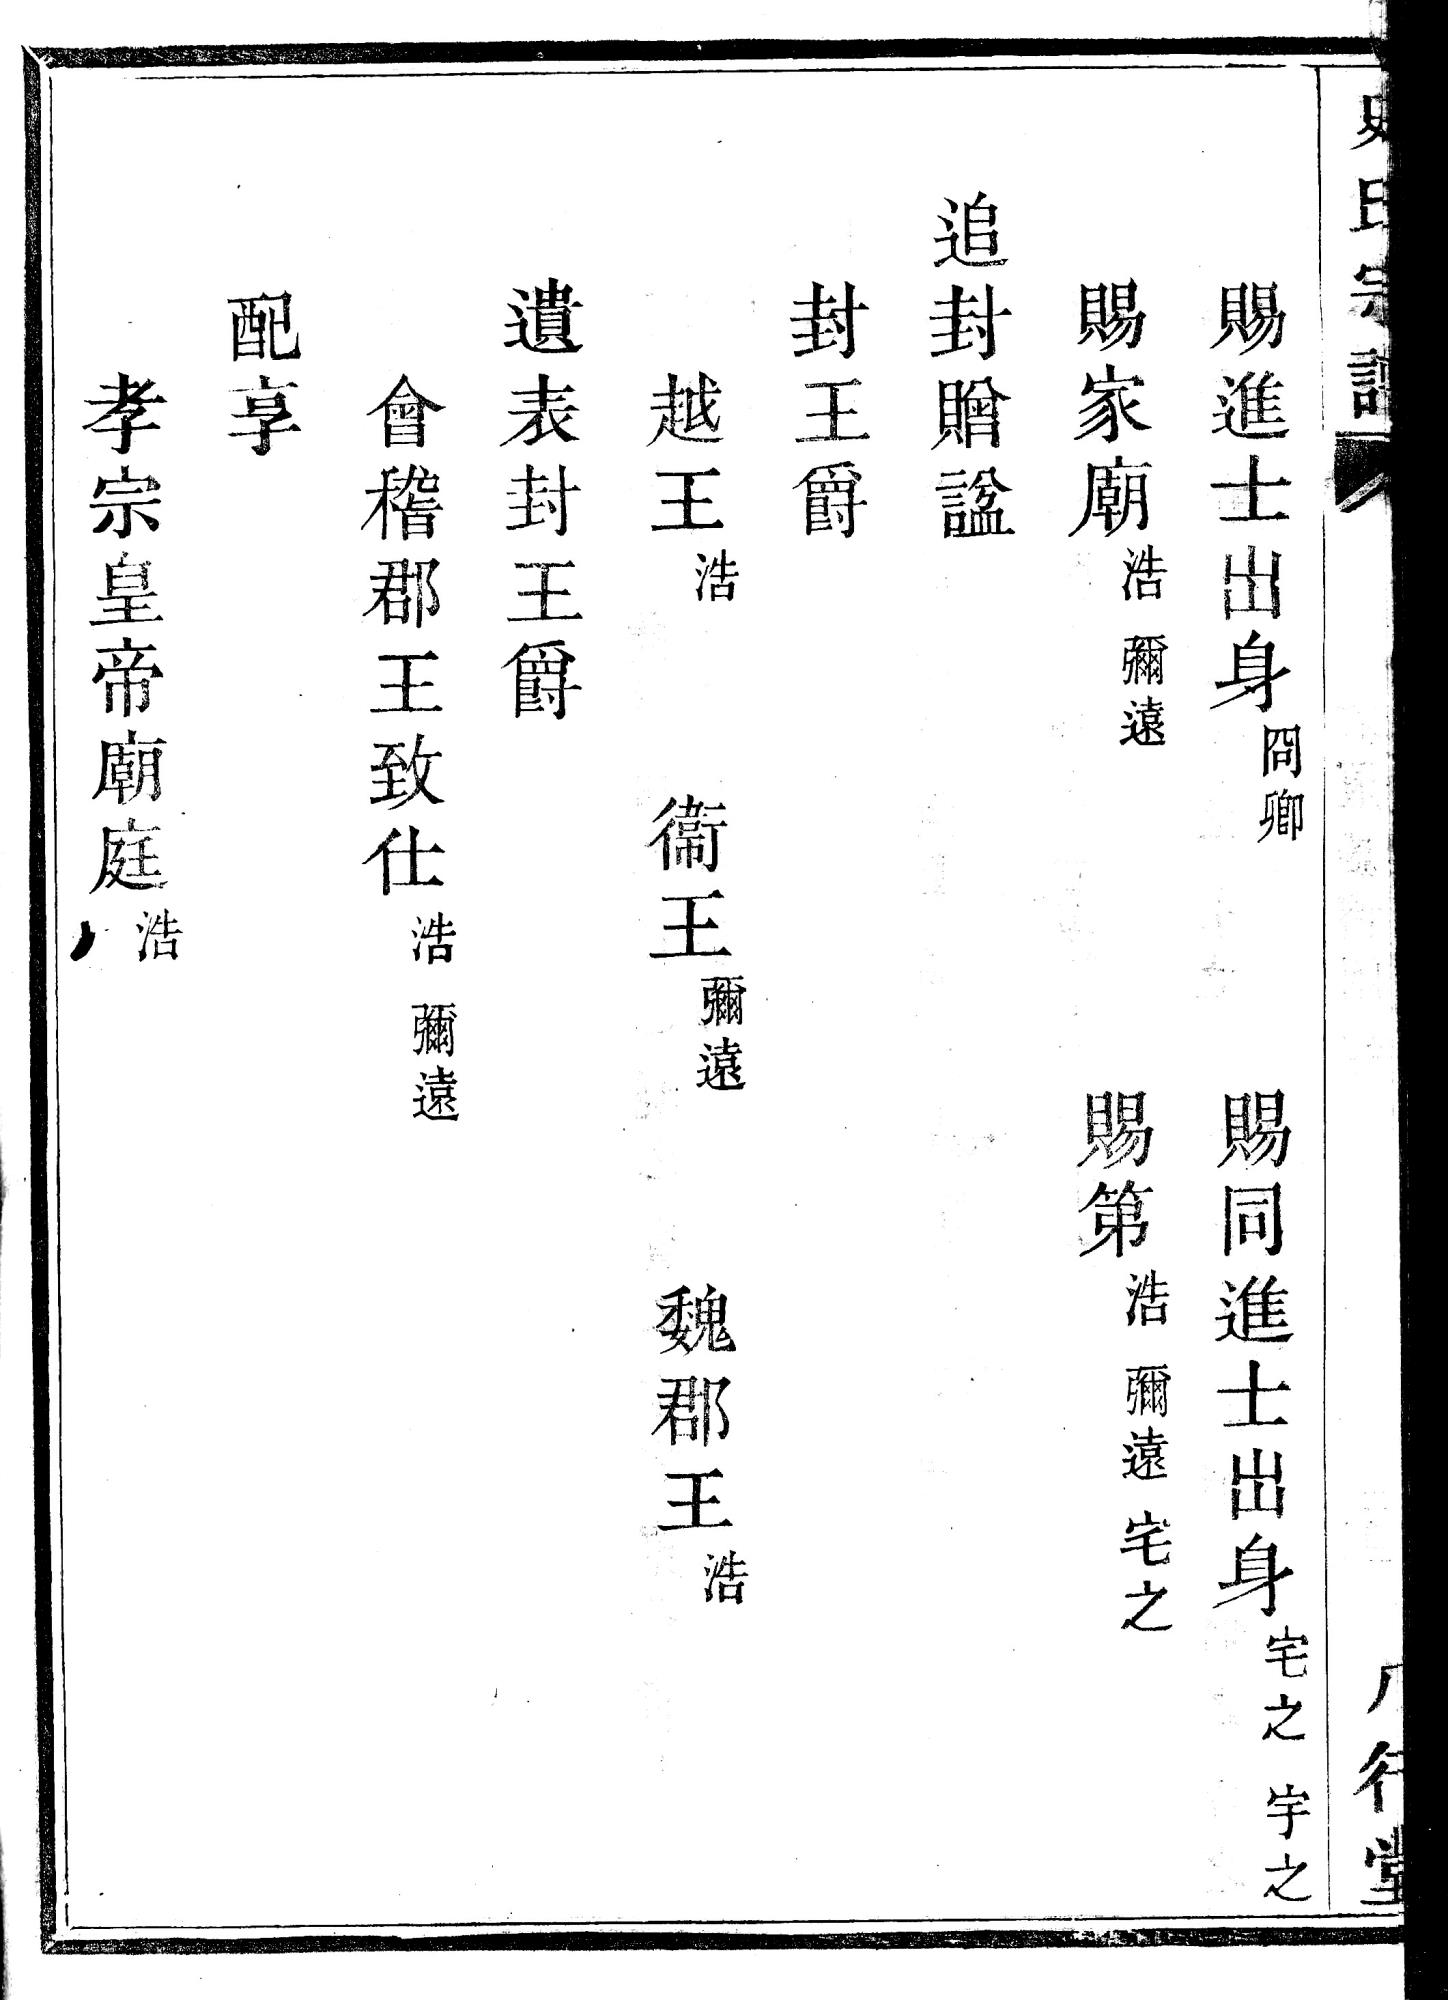 史氏宗譜
八行堂
賜進士出身 冏卿 賜同進士出身 宅之 宇之
賜家廟 浩 彌遠 賜第 浩 彌遠 宅之
追封贈諡
封王爵
越王 浩 衞王 彌遠 魏郡王 浩
遺表封王爵
會稽郡王致仕 浩 彌遠
配享
孝宗皇帝廟庭 浩